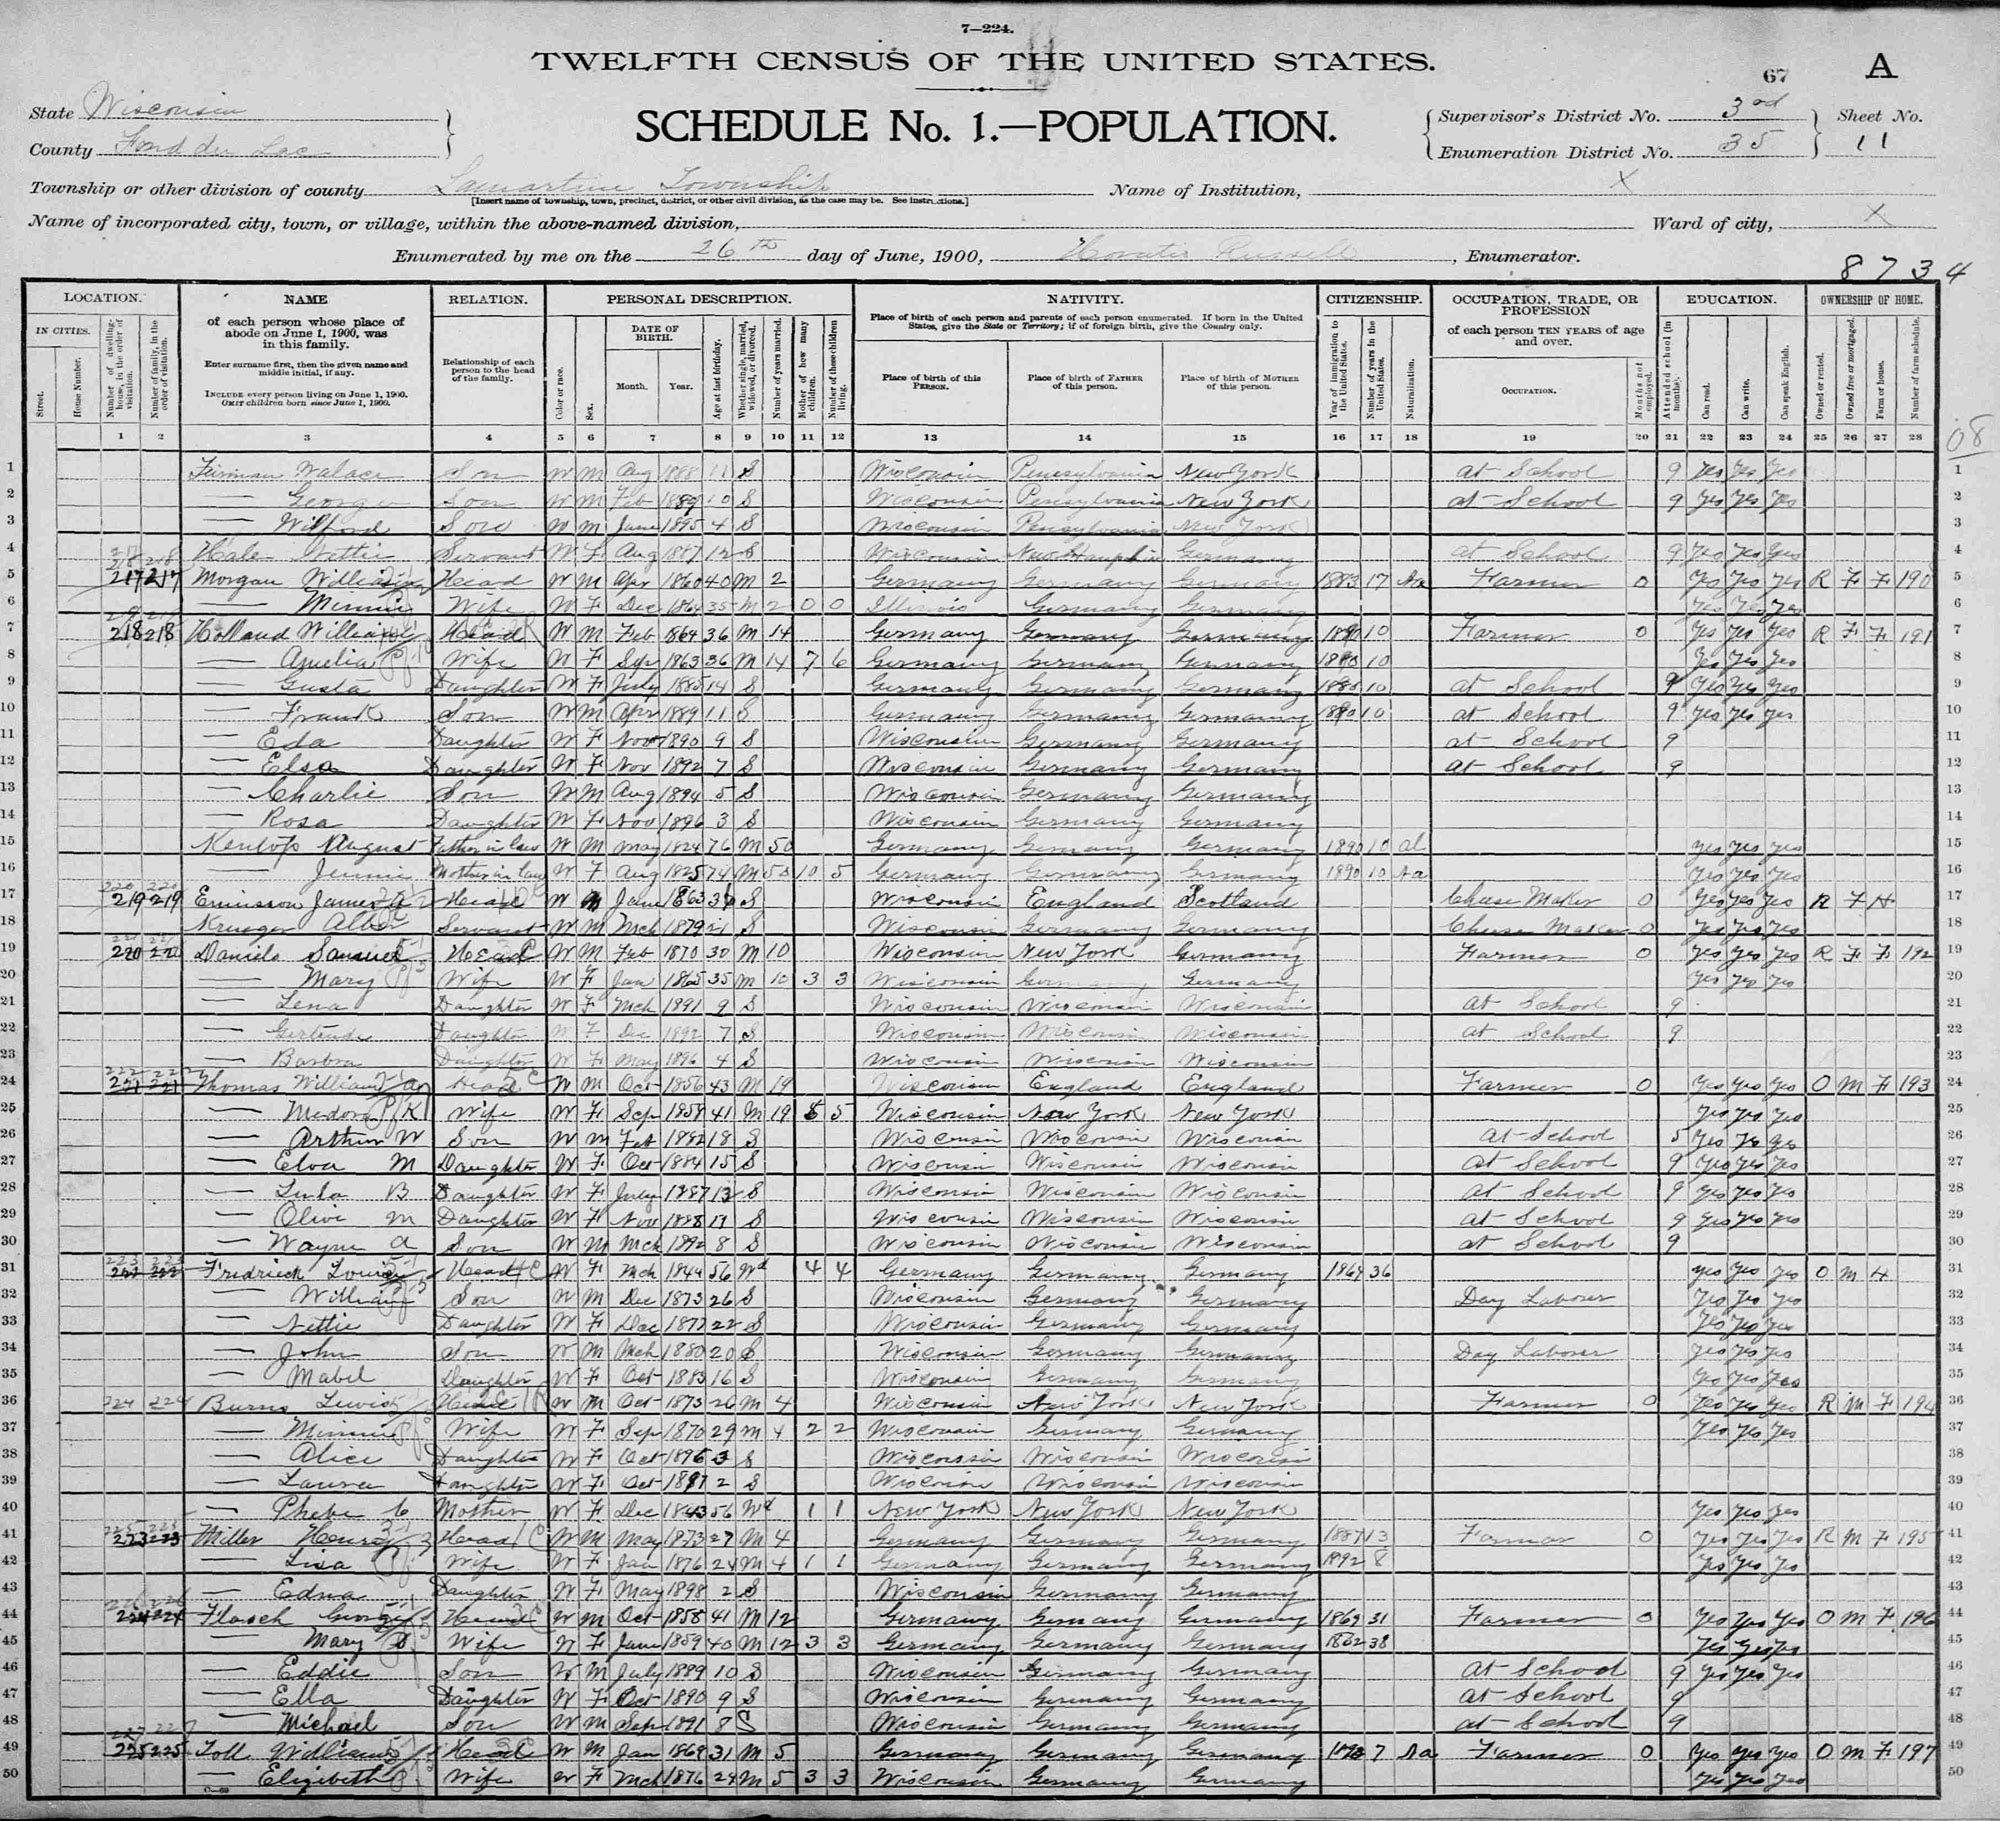 7—224.
TWELFTH CENSUS OF THE UNITED STATES.
67 A
State Wisconsin
County Fond du Lac
SCHEDULE No. 1.—POPULATION.
Supervisor's District No. 3rd
Enumeration District No. 35
Sheet No. 11
Township or other division of county Lamartine Township Name of Institution, X
[Insert name of township, town, precinct, district, or other civil division, as the case may be. See instructions.]
Name of incorporated city, town, or village, within the above-named division, Ward of city, X
Enumerated by me on the 26th day of June, 1900, Horatio Russell, Enumerator.
8734
LOCATION. NAME RELATION. PERSONAL DESCRIPTION. NATIVITY. CITIZENSHIP. OCCUPATION, TRADE, OR PROFESSION EDUCATION. OWNERSHIP OF HOME.
IN CITIES. Street. House Number. Number of dwelling-house, in the order of visitation. Number of family, in the order of visitation.
of each person whose place of abode on June 1, 1900, was in this family.
Enter surname first, then the given name and middle initial, if any.
INCLUDE every person living on June 1, 1900.
OMIT children born since June 1, 1900.
Relationship of each person to the head of the family.
Color or race. Sex. DATE OF BIRTH. Month. Year. Age at last birthday. Whether single, married, widowed, or divorced. Number of years married. Mother of how many children. Number of these children living.
Place of birth of each person and parents of each person enumerated. If born in the United States, give the State or Territory; if of foreign birth, give the Country only.
Place of birth of this PERSON. Place of birth of FATHER of this person. Place of birth of MOTHER of this person.
Year of immigration to the United States. Number of years in the United States. Naturalization.
of each person TEN YEARS of age and over.
OCCUPATION. Months not employed. Attended school (in months). Can read. Can write. Can speak English. Owned or rented. Owned free or mortgaged. Farm or house. Number of farm schedule.
1 2 3 4 5 6 7 8 9 10 11 12 13 14 15 16 17 18 19 20 21 22 23 24 25 26 27 28
08
1 Furman Walace Son W M Aug 1888 11 S Wisconsin Pensylvania New York at School 9 Yes Yes Yes 1
2 — George Son W M Feb 1889 10 S Wisconsin Pensylvania New York at School 9 Yes Yes Yes 2
3 — Wilford Son W M June 1895 4 S Wisconsin Pensylvania New York 3
4 Hale Servant W F Aug 1887 12 S Wisconsin Germany at School 9 Yes Yes Yes 4
5 217 217 Morgan William Head W M Apr 1860 40 M 2 Germany Germany Germany 1883 17 Na Farmer 0 Yes Yes Yes R F F 190 5
6 — Minnie Wife W F Dec 1864 35 M 2 0 0 Illinois Germany Germany Yes Yes Yes 6
7 218 218 Holland William Head W M Feb 1864 36 M 14 Germany Germany Germany 1890 10 Farmer 0 Yes Yes Yes R F F 191 7
8 — Amelia Wife W F Sep 1863 36 M 14 7 6 Germany Germany Germany 1890 10 Yes Yes Yes 8
9 — Gusta Daughter W F July 1885 14 S Germany Germany Germany 10 at School 9 Yes Yes Yes 9
10 — Frank Son W M Apr 1889 11 S Germany Germany Germany 1890 10 at School 9 Yes Yes Yes 10
11 — Eda Daughter W F Nov 1890 9 S Wisconsin Germany Germany at School 9 11
12 — Elsa Daughter W F Nov 1892 7 S Wisconsin Germany Germany at School 9 12
13 — Charlie Son W M Aug 1894 5 S Wisconsin Germany Germany 13
14 — Rosa Daughter W F Nov 1896 3 S Wisconsin Germany Germany 14
15 August Father in law W M May 1824 76 M 50 Germany Germany Germany 1890 10 al Yes Yes Yes 15
16 — Jennie Mother in law W F Aug 1825 74 M 50 10 5 Germany Germany Germany 1890 10 Na Yes Yes Yes 16
17 219 219 James Head W M June 1863 S Wisconsin England Scotland Cheese Maker 0 Yes Yes Yes R F H 17
18 Krueger Albert Servant W M Mch 1879 21 S Wisconsin Germany Germany Cheese Maker 0 Yes Yes Yes 18
19 220 220 Daniels Samuel Head W M Feb 1870 30 M 10 Wisconsin New York Germany Farmer 0 Yes Yes Yes R F F 192 19
20 — Mary Wife W F Jan 1865 35 M 10 3 3 Wisconsin Germany Germany Yes Yes Yes 20
21 — Lena Daughter W F Mch 1891 9 S Wisconsin Wisconsin Wisconsin at School 9 21
22 — Gertrude Daughter W F Dec 1892 7 S Wisconsin Wisconsin Wisconsin at School 9 22
23 — Barbra Daughter W F May 1896 4 S Wisconsin Wisconsin Wisconsin 23
24 221 221 Thomas William Head W M Oct 1856 43 M 19 Wisconsin England England Farmer 0 Yes Yes Yes O M F 193 24
25 — Medora K Wife W F Sep 1858 41 M 19 5 5 Wisconsin New York New York Yes Yes Yes 25
26 — Arthur W Son W M Feb 1882 18 S Wisconsin Wisconsin Wisconsin at School 5 Yes Yes Yes 26
27 — Elva M Daughter W F Oct 1884 15 S Wisconsin Wisconsin Wisconsin at School 9 Yes Yes Yes 27
28 — Lula B Daughter W F July 1887 12 S Wisconsin Wisconsin Wisconsin at School 9 Yes Yes Yes 28
29 — Olive M Daughter W F Nov 1888 11 S Wisconsin Wisconsin Wisconsin at School 9 Yes Yes Yes 29
30 — Wayne A Son W M Mch 1892 8 S Wisconsin Wisconsin Wisconsin at School 9 30
31 222 222 Fredrick Louisa Head W F Mch 1844 56 Wd 4 4 Germany Germany Germany 1864 36 Yes Yes Yes O M H 31
32 — William Son W M Dec 1873 26 S Wisconsin Germany Germany Day Laborer Yes Yes Yes 32
33 — Nettie Daughter W F Dec 1877 22 S Wisconsin Germany Germany Yes Yes Yes 33
34 — John Son W M Mch 1880 20 S Wisconsin Germany Germany Day Laborer Yes Yes Yes 34
35 — Mabel Daughter W F Oct 1883 16 S Wisconsin Germany Germany Yes Yes Yes 35
36 224 224 Burns Lewis Head W M Oct 1873 26 M 4 Wisconsin New York New York Farmer 0 Yes Yes Yes R M F 194 36
37 — Minnie Wife W F Sep 1870 29 M 4 2 2 Wisconsin Germany Germany Yes Yes Yes 37
38 — Alice Daughter W F Oct 1896 3 S Wisconsin Wisconsin Wisconsin 38
39 — Laura Daughter W F Oct 1897 2 S Wisconsin Wisconsin Wisconsin 39
40 — Phebe C Mother W F Dec 1843 56 Wd 1 1 New York New York New York Yes Yes Yes 40
41 223 223 Miller Henry Head W M May 1873 27 M 4 Germany Germany Germany 1887 13 Farmer 0 Yes Yes Yes R M F 195 41
42 — Lisa Wife W F Jan 1876 24 M 4 1 1 Germany Germany Germany 1892 8 Yes Yes Yes 42
43 — Edna Daughter W F May 1898 2 S Wisconsin Germany Germany 43
44 224 224 Flasch George Head W M Oct 1858 41 M 12 Germany Germany Germany 1869 31 Farmer 0 Yes Yes Yes O M F 196 44
45 — Mary Wife W F June 1859 40 M 12 3 3 Germany Germany Germany 1862 38 Yes Yes Yes 45
46 — Eddie Son W M July 1889 10 S Wisconsin Germany Germany at School 9 Yes Yes Yes 46
47 — Ella Daughter W F Oct 1890 9 S Wisconsin Germany Germany at School 9 47
48 — Michael Son W M Sep 1891 8 S Wisconsin Germany Germany at School 9 48
49 225 225 Toll William Head W M Jan 1869 31 M 5 Germany Germany Germany 7 Na Farmer 0 Yes Yes Yes O M F 197 49
50 — Elizibeth Wife W F Mch 1876 24 M 5 3 3 Wisconsin Germany Germany Yes Yes Yes 50